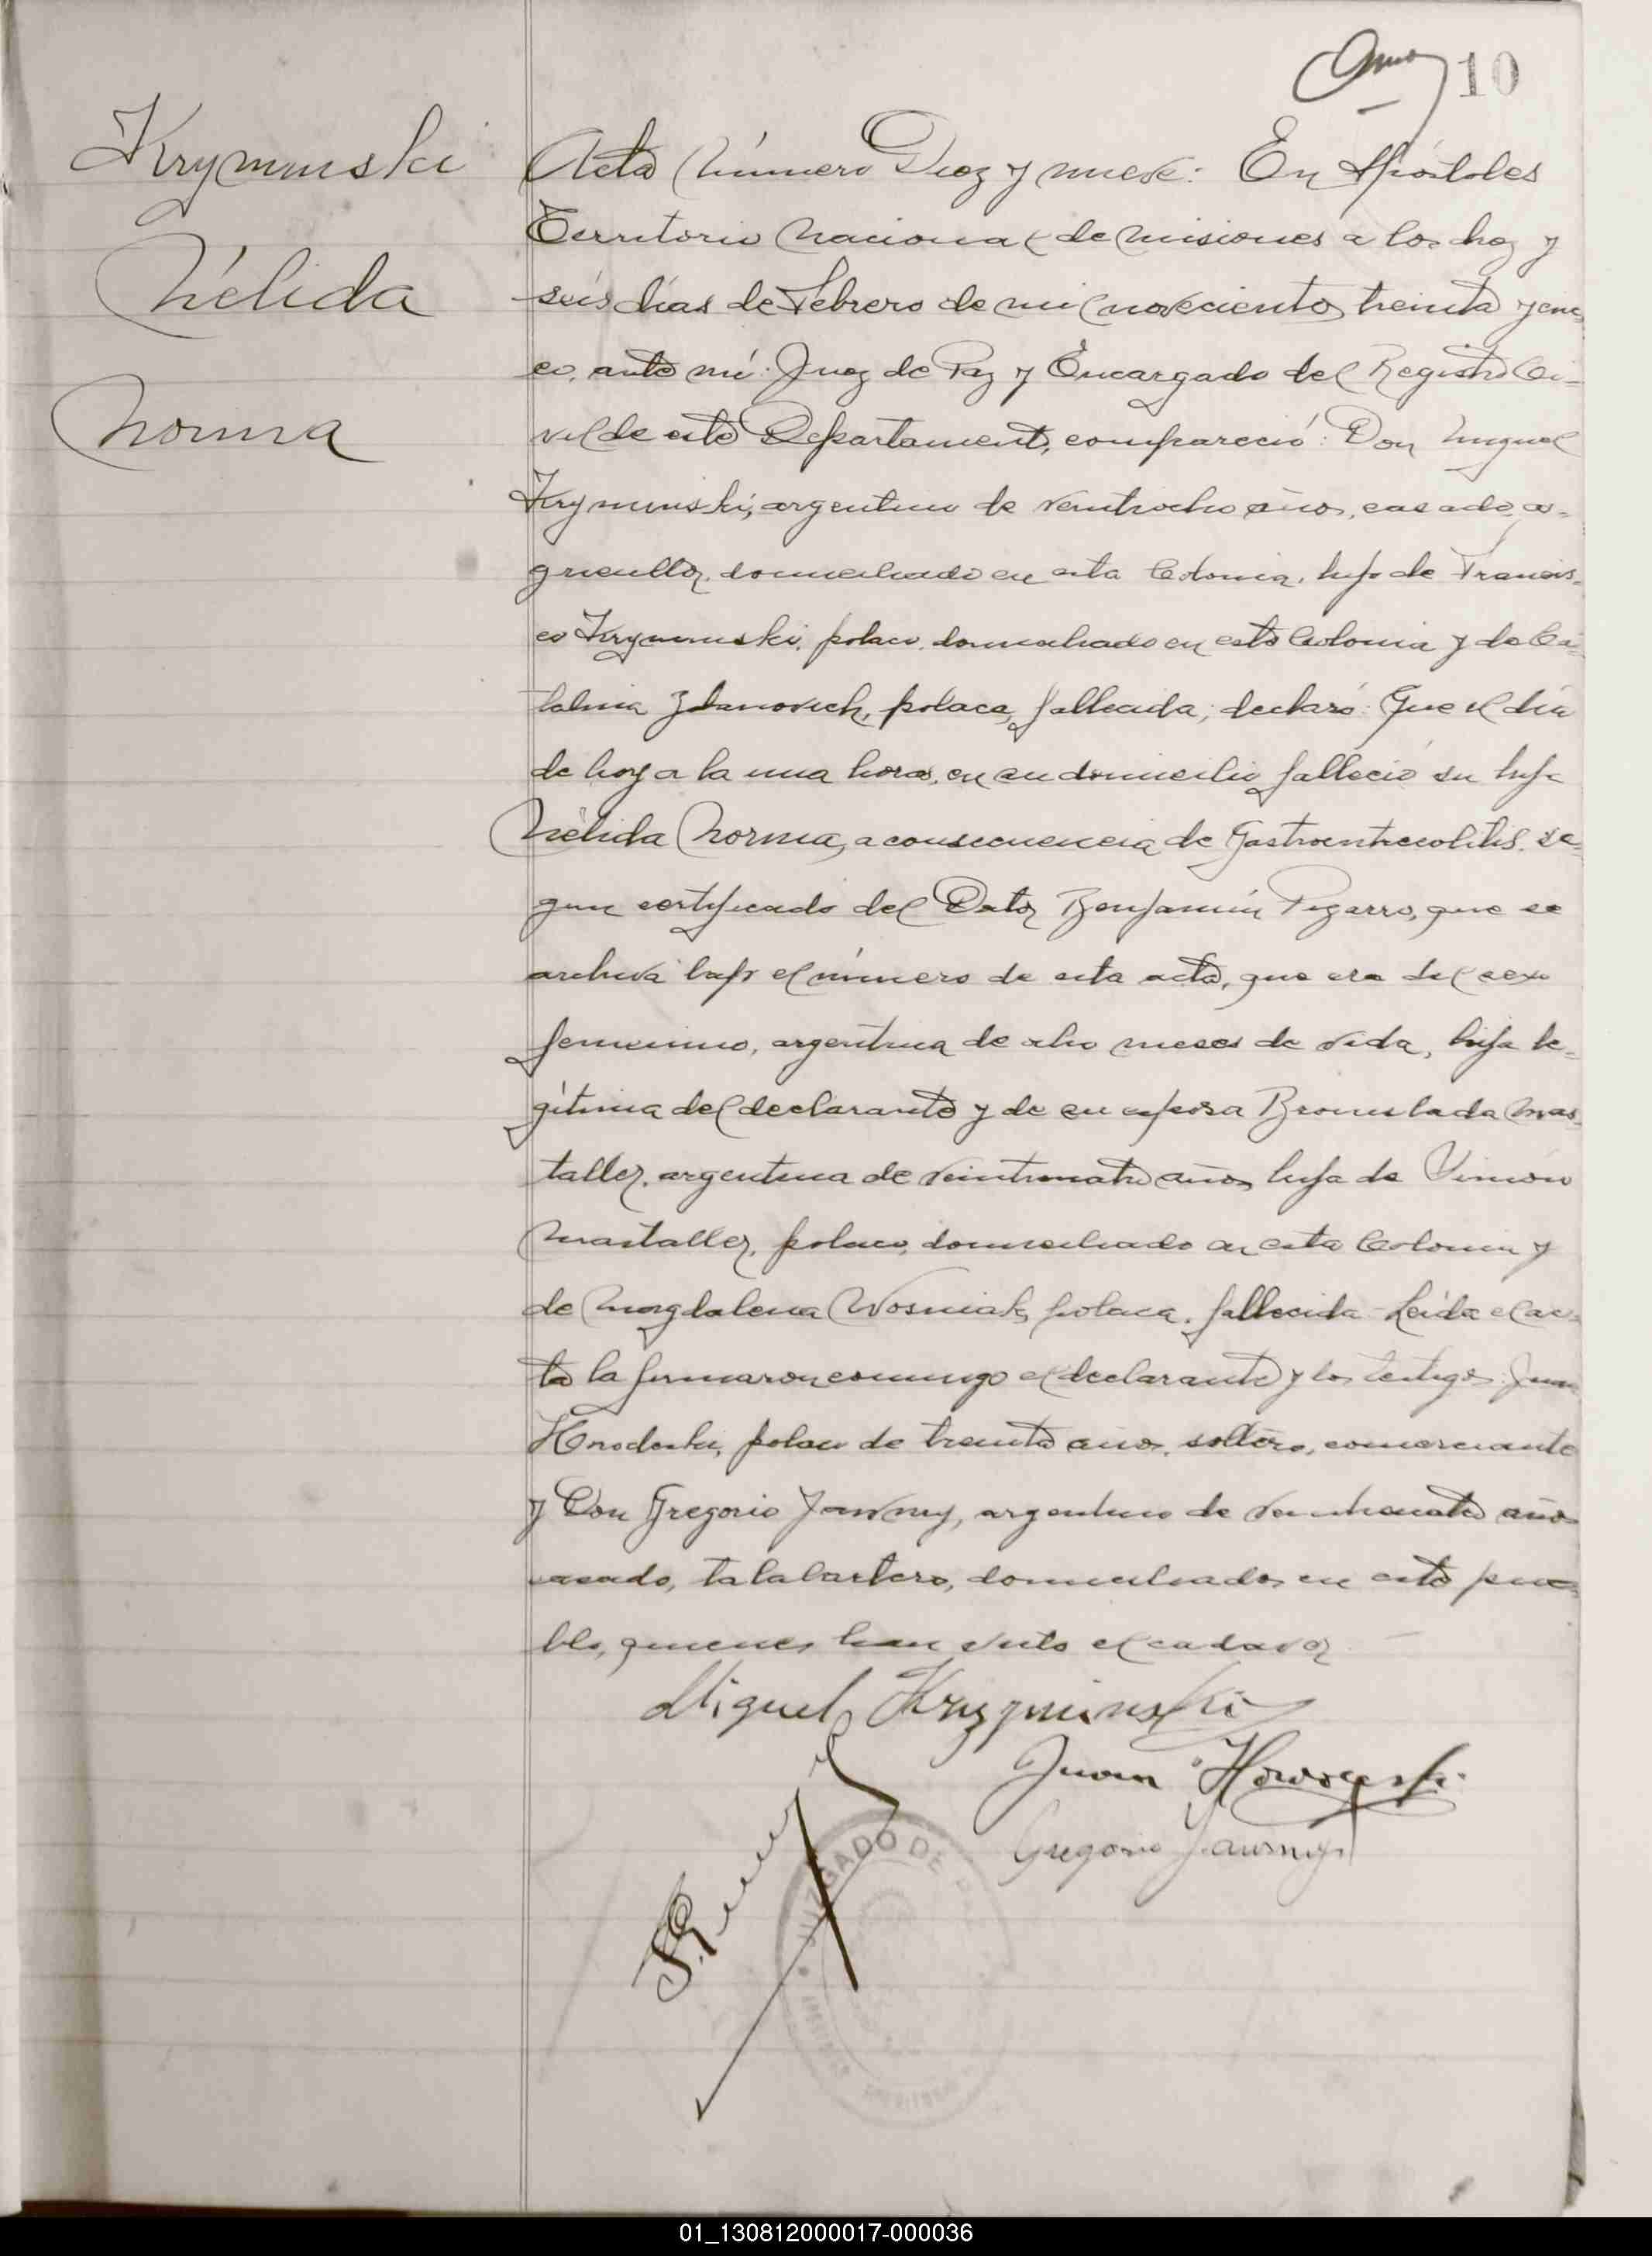 10
Kryminski
Nélida
Norma
Acta Número Diez y nueve: En Apóstoles
Territorio Nacional de Misiones a los diez y
seis días de Febrero de mil novecientos treinta y cin-
co, ante mí: Juez de Paz y Encargado del Registro Ci-
vil de este Departamento, compareció: Don Miguel
Kryminski, argentino de veintiocho años, casado, a-
gricultor, domiciliado en esta Colonia, hijo de Francis-
co Kryminski, polaco, domiciliado en esta Colonia y de Ca-
talina Zdanovich, polaca, fallecida; declaró: Que el día
de hoy a la una horas, en su domicilio falleció su hija
Nélida Norma, a consecuencia de Gastroenterocolitis, se-
gun certificado del Dctor Benjamín Pizarro, que se
archiva bajo el número de esta acta, que era del sexo
femenino, argentina de ocho meses de vida, hija le-
gítima del declarante y de su esposa Bronislada Mas-
taller, argentina de veinticuatro años hija de Simón
Mastaller, polaco, domiciliado en esta Colonia y
de Magdalena Wosniak, polaca, fallecida - Leída el ac-
ta la firmaron conmigo el declarante y los testigos: Juan
polaco de treinta años, soltero, comerciante
y Don Gregorio Jawrny, argentino de veinticuatro años
casado, talabartero, domiciliados en este pue-
blo, quienes han visto el cadaver.
Miguel Kryzminski
Juan
Gregorio Jawrnyj
JUZGADO DE
01_130812000017-000036